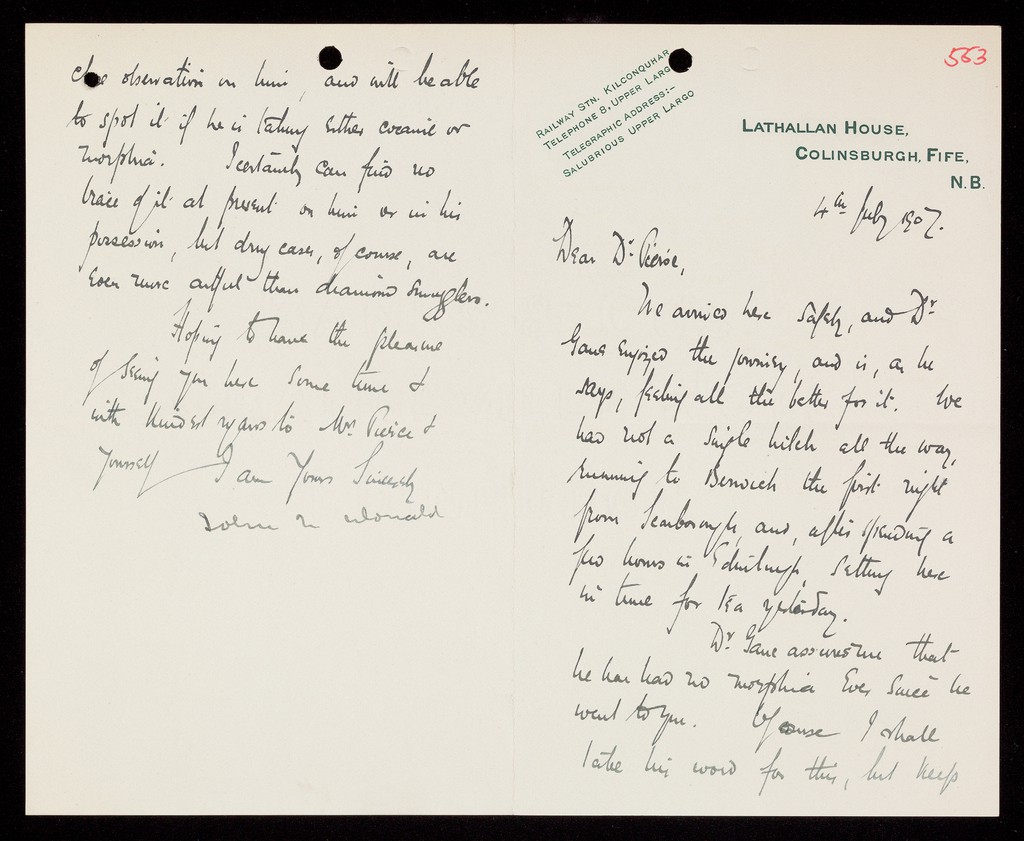 563
RAILWAY STN. KILCONQUHAR
TELEPHONE 8, UPPER LARGO
TELEGRAPHIC ADDRESS:-
SALUBRIOUS UPPER LARGO
LATHALLAN HOUSE,
COLINSBURGH, FIFE,
N.B.
4th July 1907.
Dear Dr. Pierce,
We arrived here safely, and Dr
Gane enjoyed the journey, and is, as he
says, feeling all the better for it. We
had not a single hitch all the way,
running to Berwick the first night
from Scarborough, and, after spending a
few hours in Edinburgh, getting here
in time for tea yesterday.
Dr. Gane assures me that
he has had no morphia ever since he
went to you. Of course I shall
take his word for this, but keep
close observation on him, and will be able
to spot it if he is taking either cocaine or
morphia. I certainly can find no
trace of it at present on him or in his
possession, but drug cases, of course, are
even more artful than diamond smugglers.
Hoping to have the pleasure
of seeing you here some time &
with kindest regards to Mrs. Pierce &
yourself I am Yours Sincerely